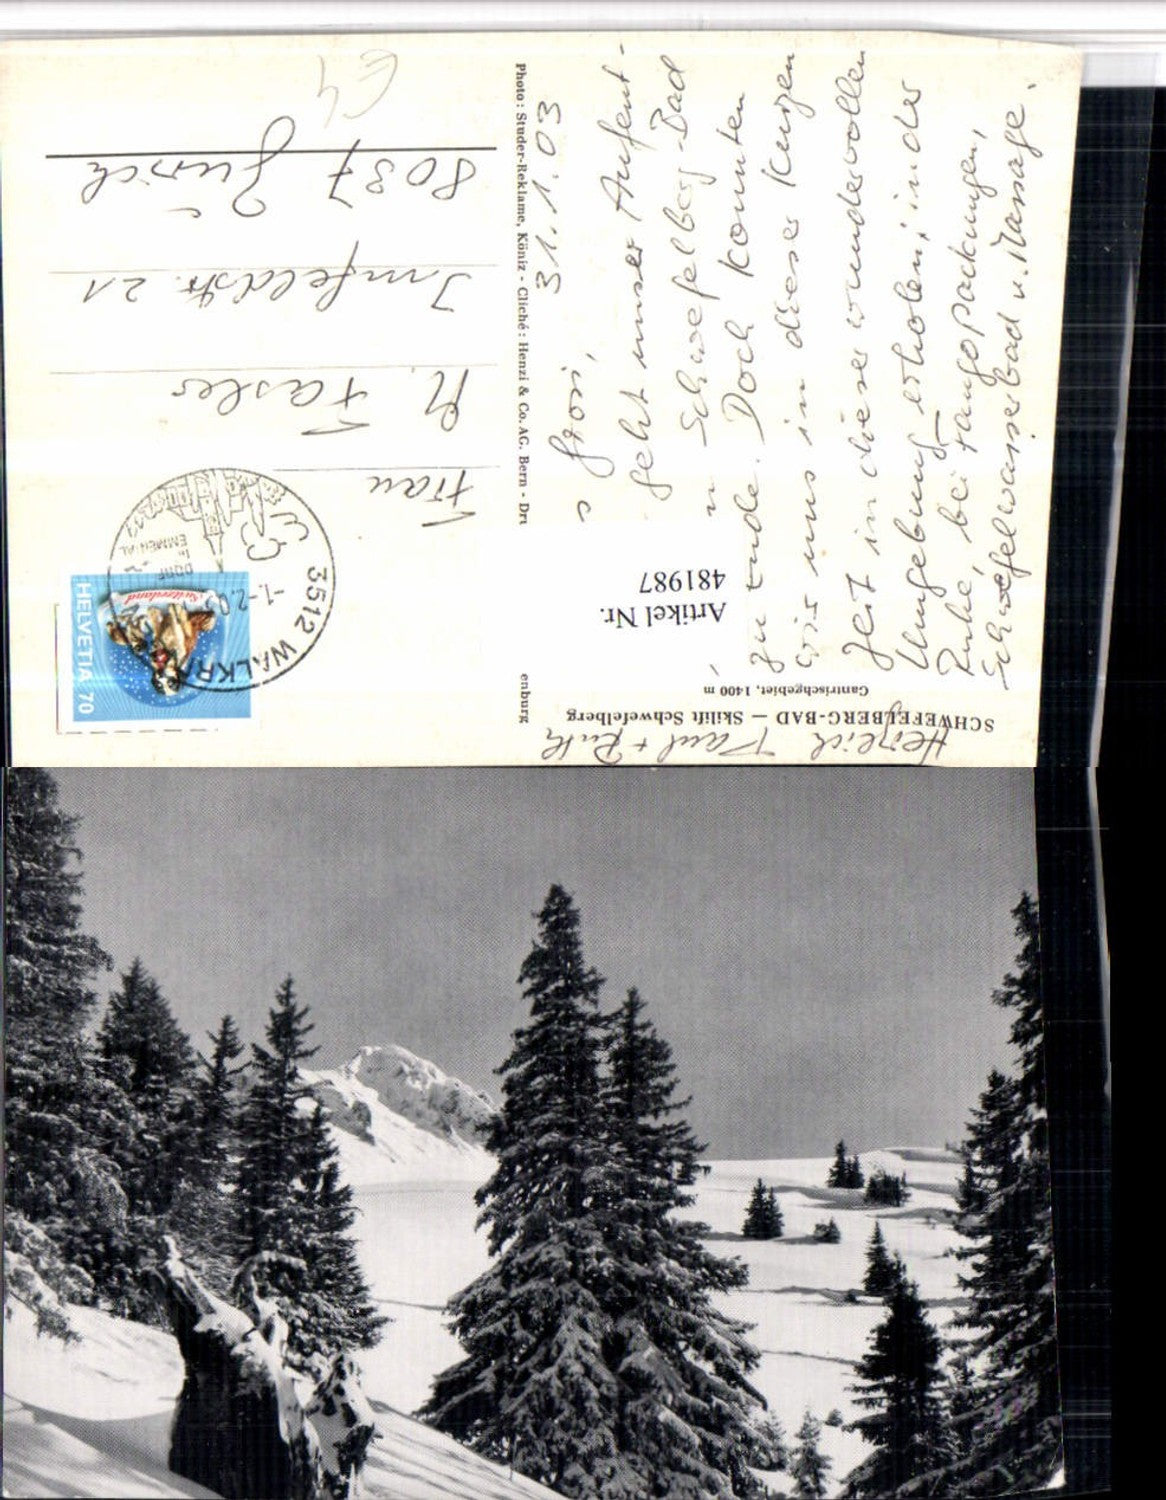 SCHWEFELBERG-BAD — Skilift Schwefelberg
Gantrischgebiet, 1400 m
Artikel Nr.
481987
31.1.03
geht unser Aufent-
Schwefelberg-Bad
zu Ende. Doch konnten
wir uns in dieser kurzen
Zeit in dieser wundervollen
Umgebung erholen, in der
Ruhe, bei Fangopackungen,
Schwefelwasserbad u. Massage.
Herzlich Paul + Ruth
Photo: Studer-Reklame, Köniz - Cliché: Henzi & Co. AG. Bern - Dru
enburg
HELVETIA 70
Switzerland
3512 WALKR
-1.-2.03
DORF
IM
EMMENTAL
Frau
M. Fasler
Imfeldstr. 21
8037 Zürich